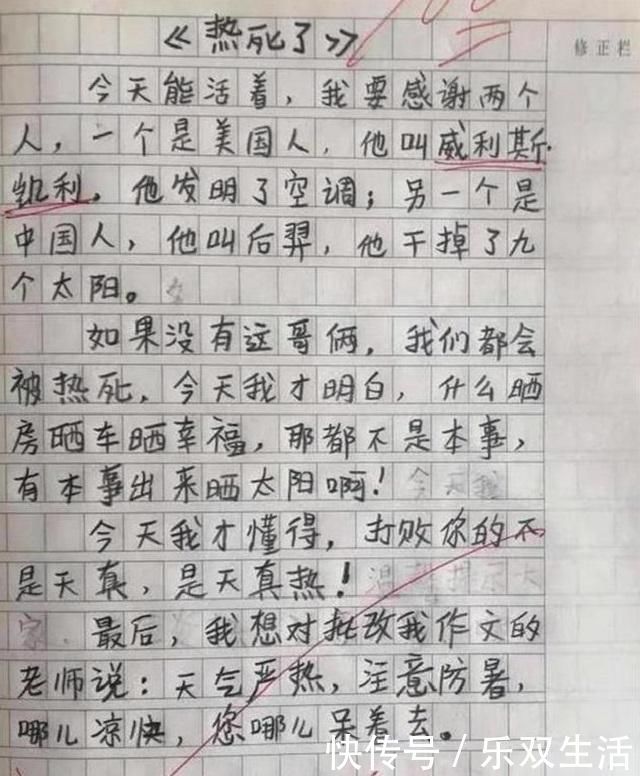 《热死了》
修正栏
今天能活着，我要感谢两个
人，一个是美国人，他叫威利斯·
凯利，他发明了空调；另一个是
中国人，他叫后羿，他干掉了九
个太阳。
如果没有这哥俩，我们都会
被热死，今天我才明白，什么晒
房晒车晒幸福，那都不是本事，
有本事出来晒太阳啊！
今天我才懂得，打败你的不
是天真，是天真热！
最后，我想对批改我作文的
老师说：天气严热，注意防暑，
哪儿凉快，您哪儿呆着去。
快传号／乐双生活